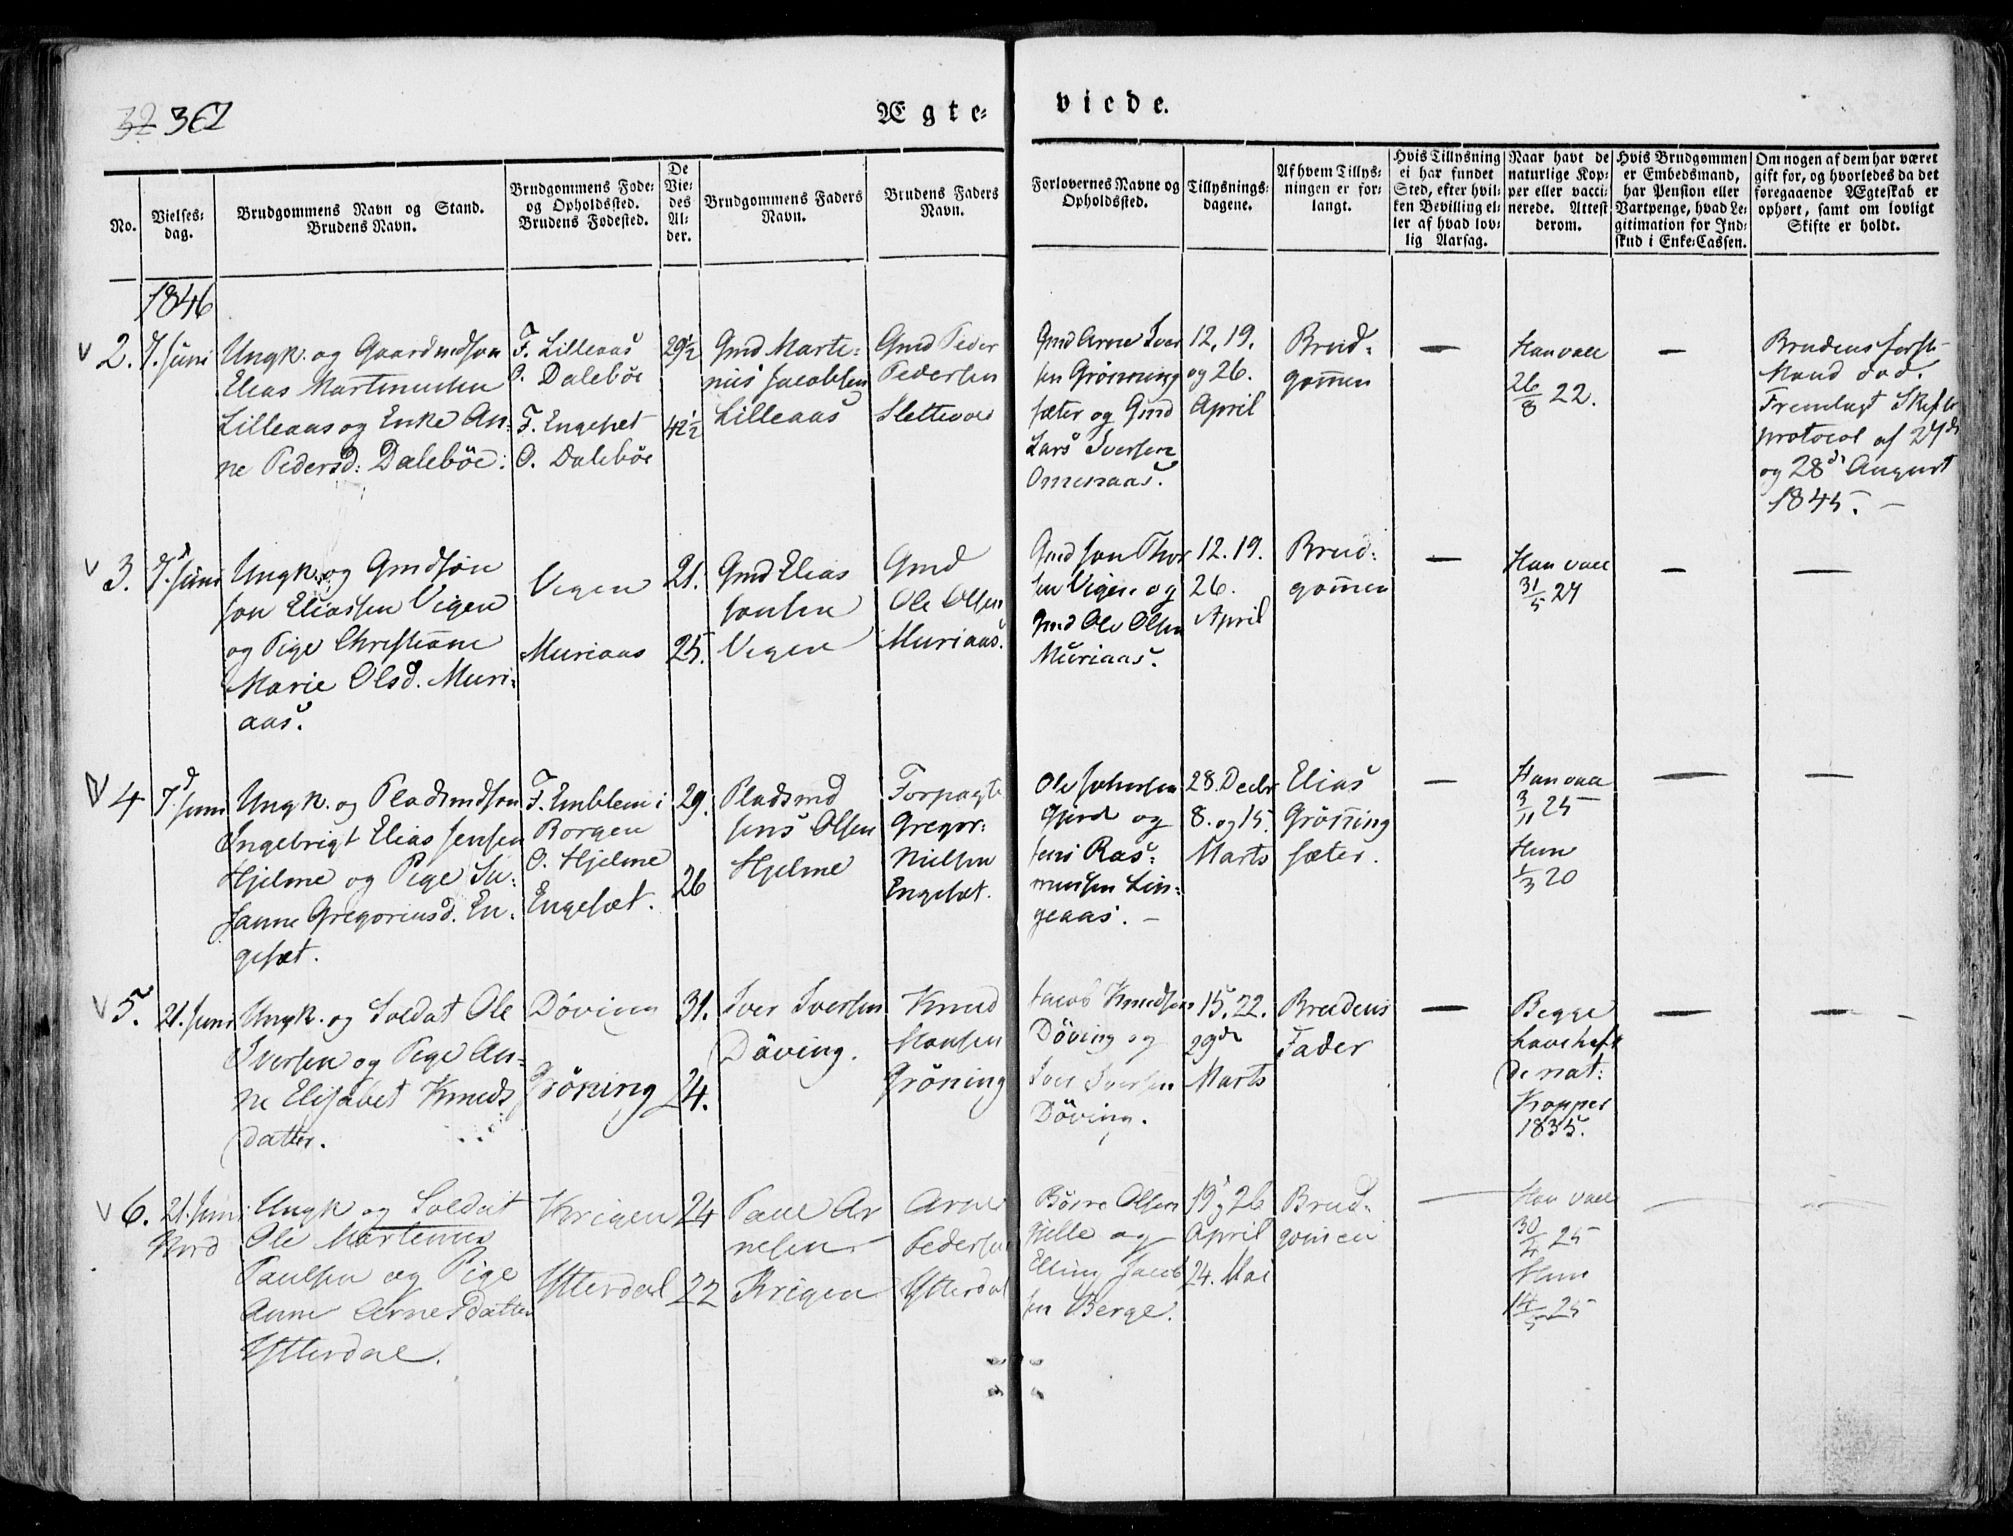 32 362
Ægte-viede.
No.
Vielses-
dag.
Brudgommens Navn og Stand.
Brudens Navn.
Brudgommens Føde-
og Opholdssted.
Brudens Fødested.
De
Vie-
des
Al-
der.
Brudgommens Faders
Navn.
Brudens Faders
Navn.
Forlovernes Navne og
Opholdssted.
Tillysnings-
dagene.
Af hvem Tillys-
ningen er for-
langt.
Hvis Tillysning
ei har fundet
Sted, efter hvil-
ken Bevilling el-
ler af hvad lov-
lig Aarsag.
Naar havt de
naturlige Kop-
per eller vacci-
nerede. Attest
derom.
Hvis Brudgommen
er Embedsmand,
har Pension eller
Vartpenge, hvad Le-
gitimation for Ind-
skud i Enke-Cassen.
Om nogen af dem har været
gift før, og hvorledes da det
foregaaende Ægteskab er
ophørt, samt om lovligt
Skifte er holdt.
1846
2.
7. Juni
Ungk. og Gaardmdsøn
Elias Martinusen
Lilleaas og Enke An-
ne Pedersd: Dalebøe.
F. Lilleaas
O. Dalebøe
F. Engeset
O. Dalebøe
29½
42½
Gmd Marte-
nius Jacobsen
Lilleaas
Gmd Peder
Pedersen
Slettevold
Gmd Arne Iver
sen Grønning
sæter og Gmd
Lars Iversen
Omenaas.
12. 19.
og 26.
April
Brud-
gommen
—
Han vacc
26/8 22.
—
Brudens første
Mand død.
Fremlagt Skifte
protocol af 27de
og 28de August
1845. —
3.
7d Juni
Ungk. og Gmdsøn
Jon Eliassen Vigen
og Pige Christiane
Marie Olsd. Muri-
aas.
Vigen
Muriaas
21.
25.
Gmd Elias
Jonsen
Vigen
Gmd
Ole Olsen
Muriaas.
Gmd Jon Thor
sen Vigen og
Gmd Ole Olsen
Muriaas.
12. 19.
26.
April
Brud-
gommen
—
Han vacc
31/5 24
—
—
4
7d Juni
Ungk. og Pladsmdsøn
Ingebrigt Elias Jensen
Hjelme og Pige Su-
sanne Gregoriusd. En-
geset.
F. Emblem i
Borgen
O. Hjelme
Engeset.
29.
26
Pladsmd
Jens Olsen
Hjelme
Forpagt
Gregor-
Nielsen
Engeset.
Ole Johnsen
Gjerd og
Jens Ras-
mussen Lin-
geaas. —
28. Decbr
8. og 15.
Marts
Elias
Grønning
sæter.
—
Han vacc
3/11 25
Hun
1/3 20
—
—
5.
21. Juni
Ungk. og Soldat Ole
Iversen og Pige An-
ne Elisabet Knuds
datter.
Døving
Grøning
31.
24.
Iver Iversen
Døving.
Knud
Hansen
Grøning
Jacob Knudsen
Døving og
Iver Iversen
Døving.
15. 22.
29de
Marts
Brudens
Fader
—
Begge
have haft
de nat:
Kopper
1835.
—
—
6.
21. Juni
Nord
Ungk og Soldat
Ole Martinus
Paulsen og Pige
Anne Arnesdatter
Ytterdal.
Krigen
Ytterdal
24
22
Paul Ar
nesen
Krigen
Arne
Pedersen
Ytterdal
Børre Olsen
Helle og
Elling Jacob
sen Berge.
19, 26
April
24. Mai
Brud-
gommen
—
Han vacc
30/4 25
Hun
14/5 25
—
—